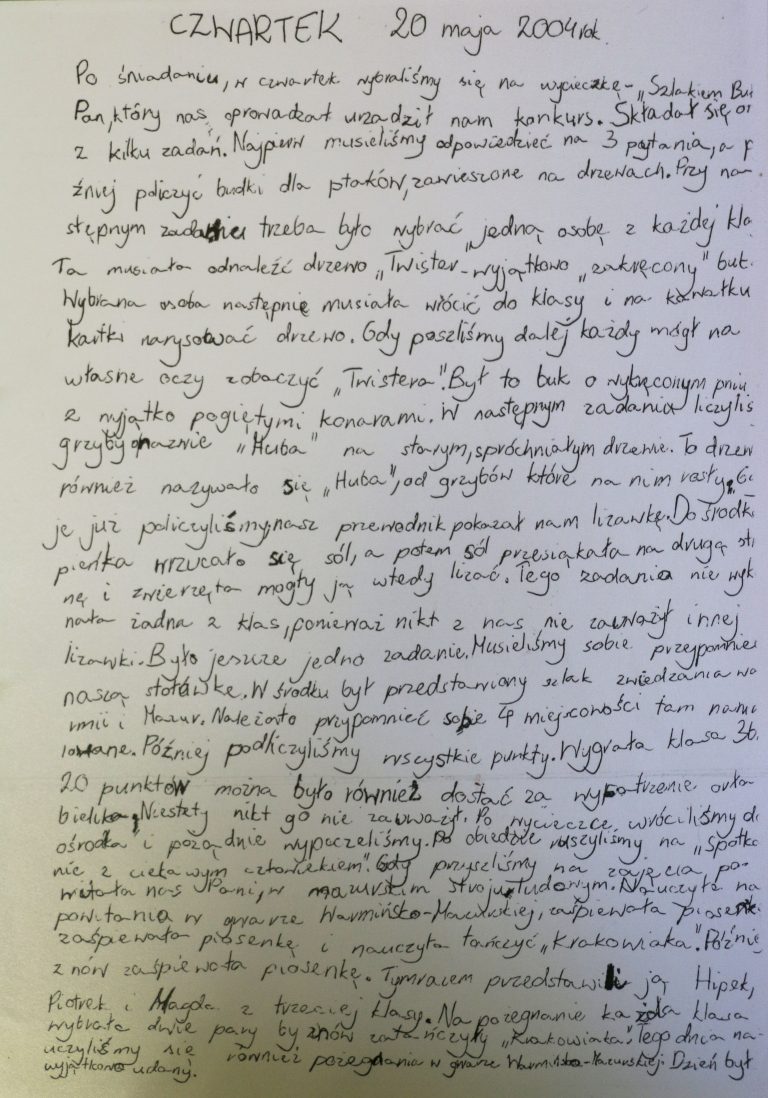 CZWARTEK 20 maja 2004 rok.
Po śniadaniu, w czwartek wybraliśmy się na wycieczkę - "Szlakiem Buk
Pan, który nas oprowadzał urządził nam konkurs. Składał się on
z kilku zadań. Najpierw musieliśmy odpowiedzieć na 3 pytania, a p
źniej policzyć budki dla ptaków, zawieszone na drzewach. Przy na-
stępnym zadaniu trzeba było wybrać jedną osobę z każdej kla
Ta musiała odnaleźć drzewo "Twister - wyjątkowo "zakręcony" buk.
Wybrana osoba następnie musiała wrócić do klasy i na kawałku
kartki narysować drzewo. Gdy poszliśmy dalej każdy mógł na
własne oczy zobaczyć "Twistera". Był to buk o wykręconym pniu
z wyjątko pogiętymi konarami. W następnym zadaniu liczyliś
grzyby o nazwie "Huba" na starym, spróchniałym drzewie. To drzew
również nazywało się "Huba", od grzybów które na nim rosły. G
je już policzyliśmy, nasz przewodnik pokazał nam lizawkę. Do środk
pieńka wrzucało się sól, a potem sól przesiąkała na drugą st
nę i zwierzęta mogły ją wtedy lizać. Tego zadania nie wyk
nała żadna z klas, ponieważ nikt z nas nie zauważył innej
lizawki. Było jeszcze jedno zadanie. Musieliśmy sobie przypomnie
naszą stołówkę. W środku był przedstawiony szlak zwiedzania wa
rmii i Mazur. Należało przypomnieć sobie 4 miejscowości tam nama
lowane. Później podliczyliśmy wszystkie punkty. Wygrała klasa 3b.
20 punktów można było również dostać za wypatrzenie orła
bielika. Niestety nikt go nie zauważył. Po wycieczce wróciliśmy do
ośrodka i porządnie wypoczęliśmy. Po obiedzie ruszyliśmy na "Spotka
nie z ciekawym człowiekiem". Gdy przyszliśmy na zajęcia po-
witała nas Pani, w mazurskim stroju ludowym. Nauczyła na
powitania w gwarze Warmińsko-Mazurskiej, zaśpiewała piosenk
zaśpiewała piosenkę i nauczyła tańczyć "Krakowiaka". Późnie
znów zaśpiewała piosenkę. Tymrazem przedstawili ją Hipek,
Piotrek i Magda z trzeciej klasy. Na pożegnanie każda klasa
wybrała dwie pary by znów zatańczyły "Krakowiaka". Tego dnia na-
uczyliśmy się również pożegnania w gwarze Warmińsko-Mazurskiej. Dzień był
wyjątkowo udany.